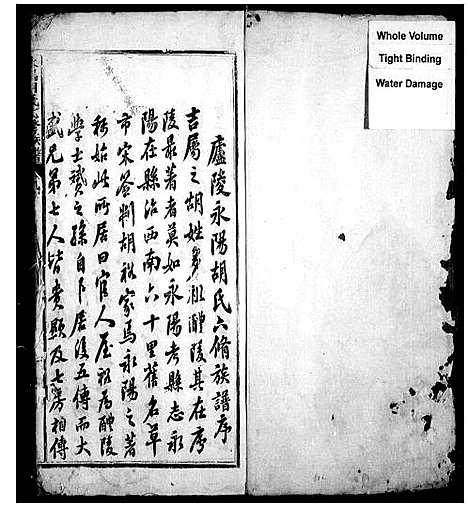 廬陵永陽胡氏六脩族譜序
吉屬之胡姓多祖醴陵其在序
陵最著者莫如永陽考縣志永
陽在縣治西南六十里舊名草
市宋簽判胡祕家焉永陽之著
稱始此所居曰官人屋祕為醴陵
學士贇之孫自卜居後五傳而大
盛兄弟七人皆貴顯及七房相傳
Whole Volume
Tight Binding
Water Damage